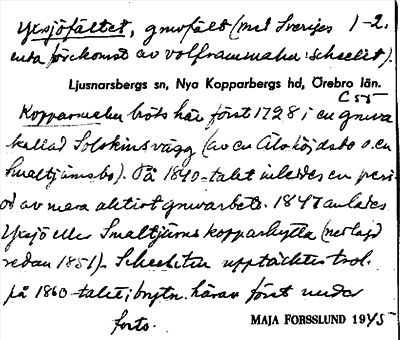 Yxsjöfältet, gruvfält (med Sveriges 1-2.
enda förekomst av volframmalm: scheelit).
Ljusnarsbergs sn, Nya Kopparbergs hd, Örebro län.
C 55
Kopparmalm bröts här först 1728 i en gruva
kallad Solskinsvägg (av en Älvhöjdsbo o. en
Smaltjärnsbo). På 1840-talet inleddes en peri-
od av mera aktivt gruvarbete. 1847 anlades
Yxsjö eller Smaltjärns kopparhytta (nedlagd
redan 1851). Scheeliten upptäcktes trol.
på 1860-talet; brytn. härav först under
forts.
MAJA FORSSLUND 1945